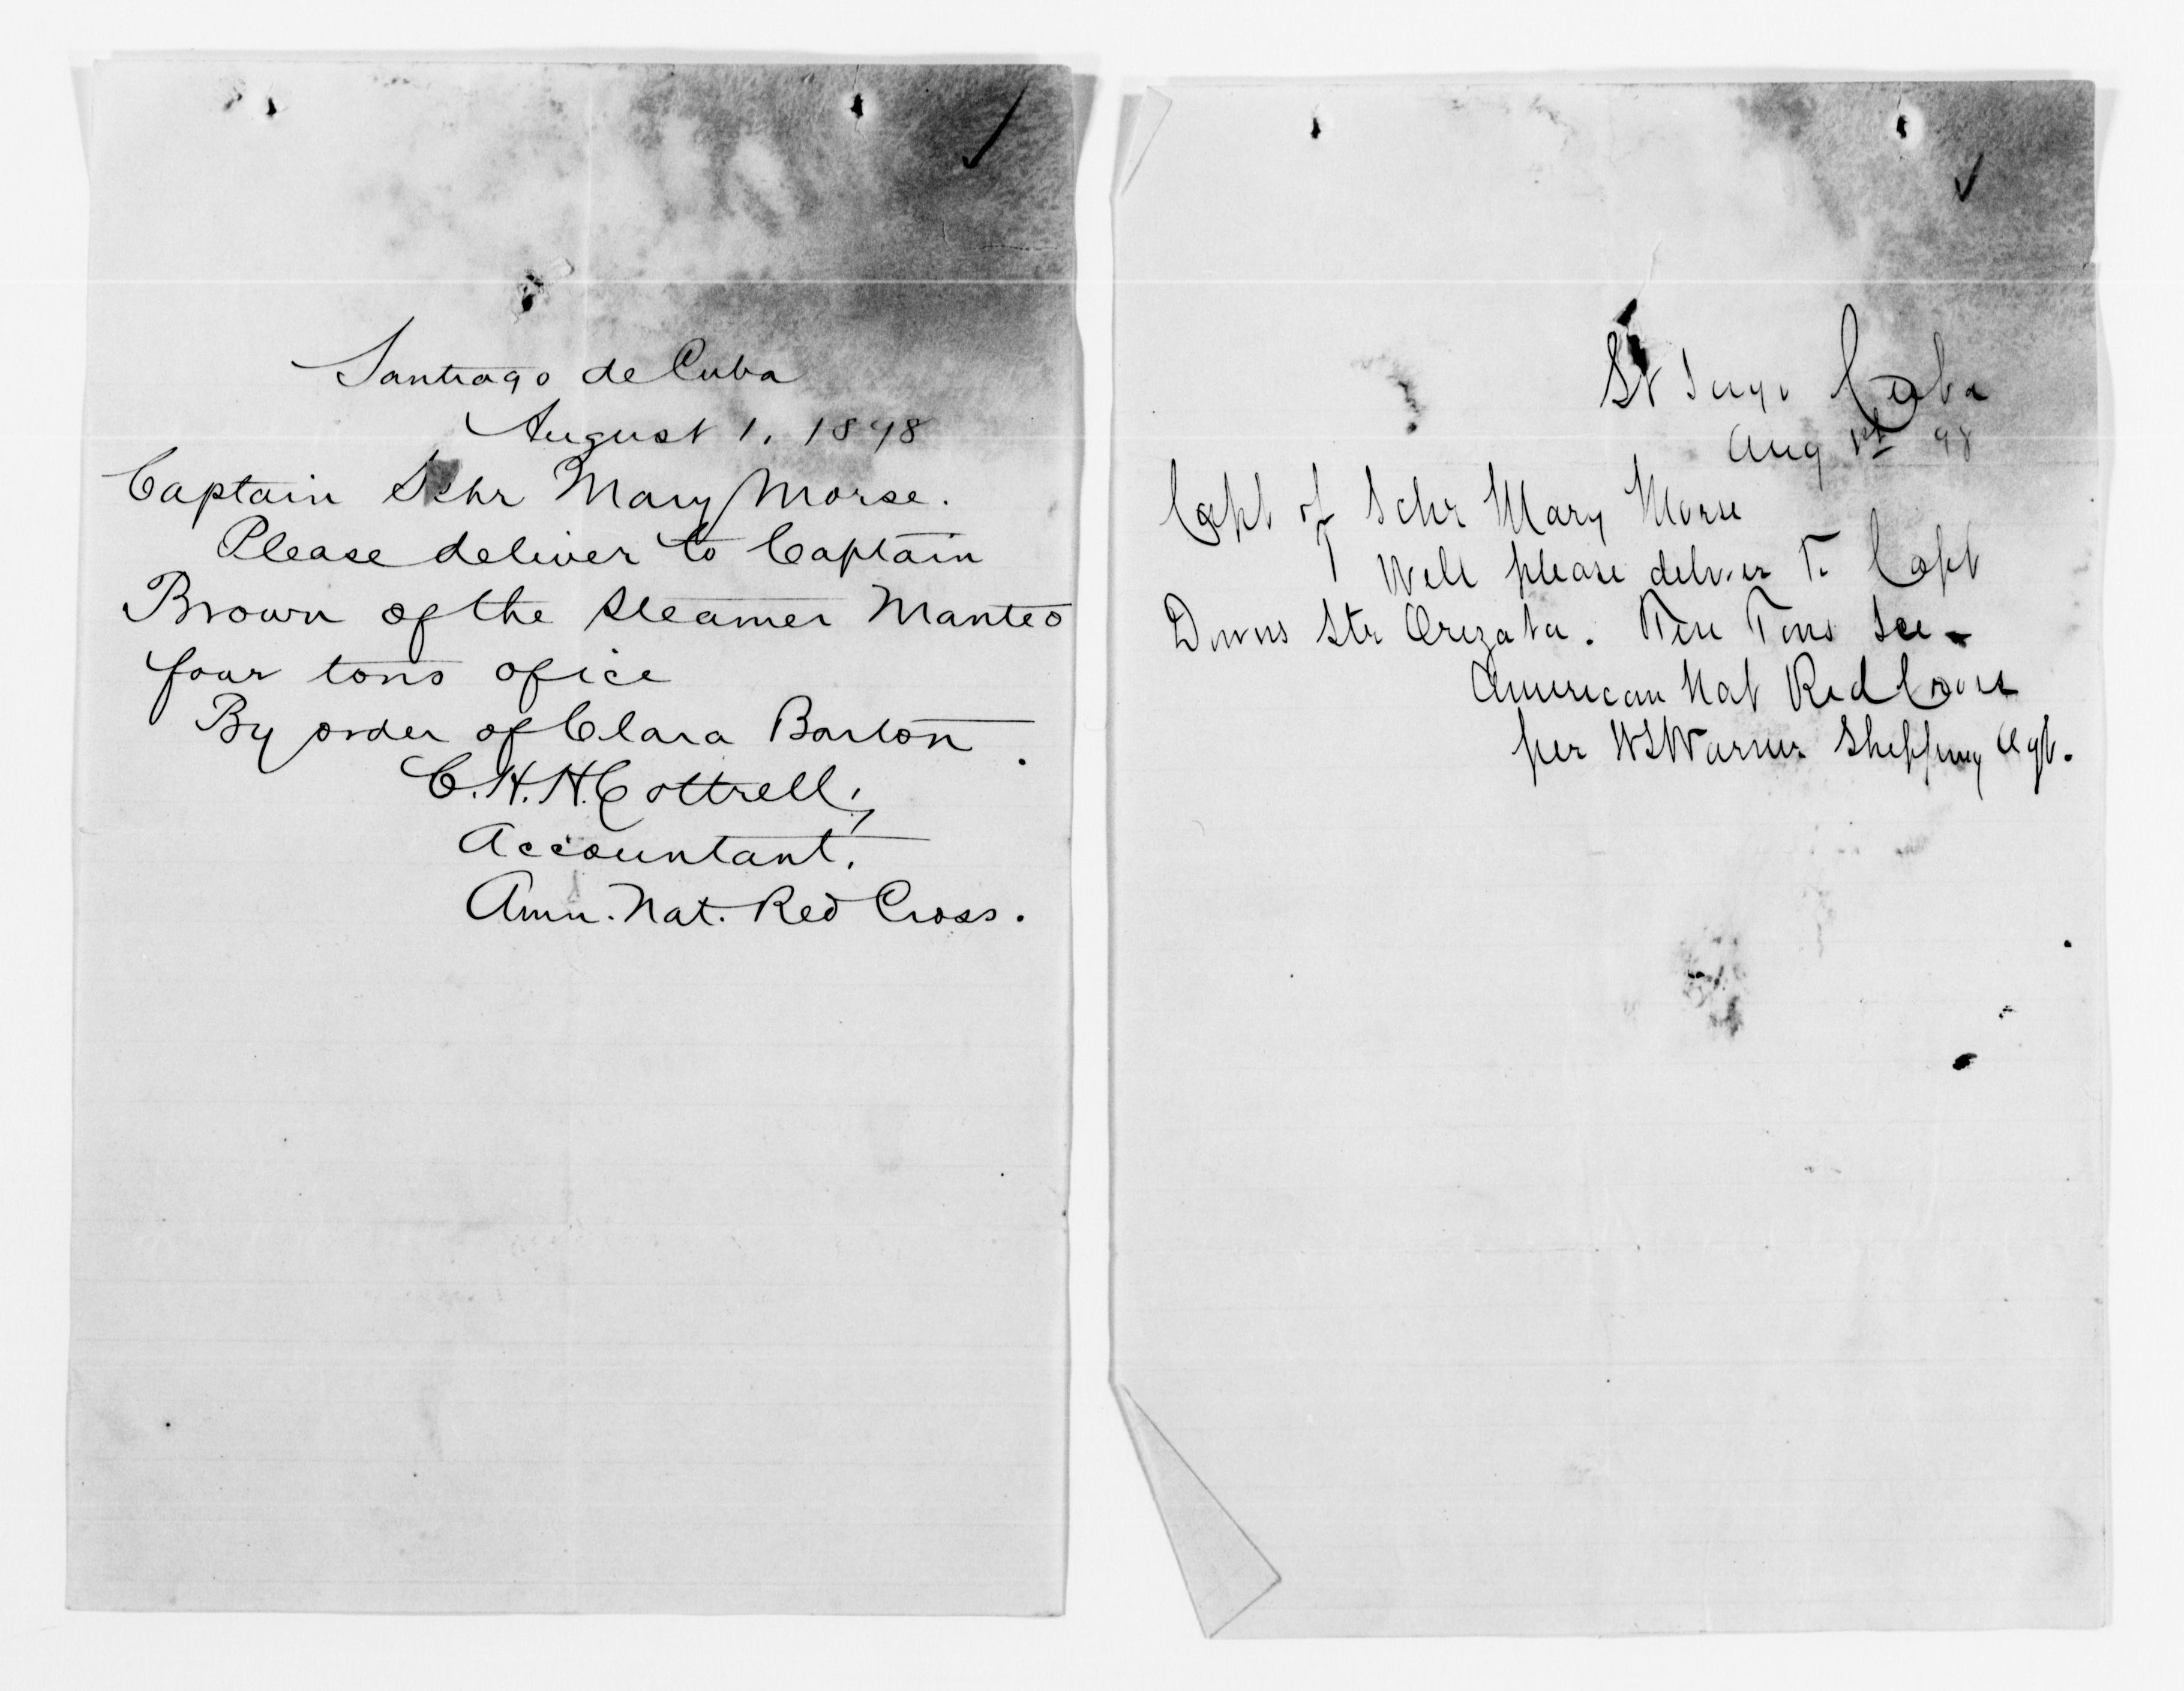 Santiago de Cuba
August 1, 1898
Captain Schr Mary Morse.
Please deliver to Captain
Brown of the Steamer Manteo
four tons of ice
By order of Clara Barton.
C.H.H. Cottrell,
Accountant.
Amn. Nat. Red Cross.
St Jago Cuba
Aug 1st 98
Capt of Schr Mary Morse
Will please deliver To Capt
Downs Str Orizaba. Ten Tons Ice
American Nat Red Cross
per WSWarner Shipping Agt.